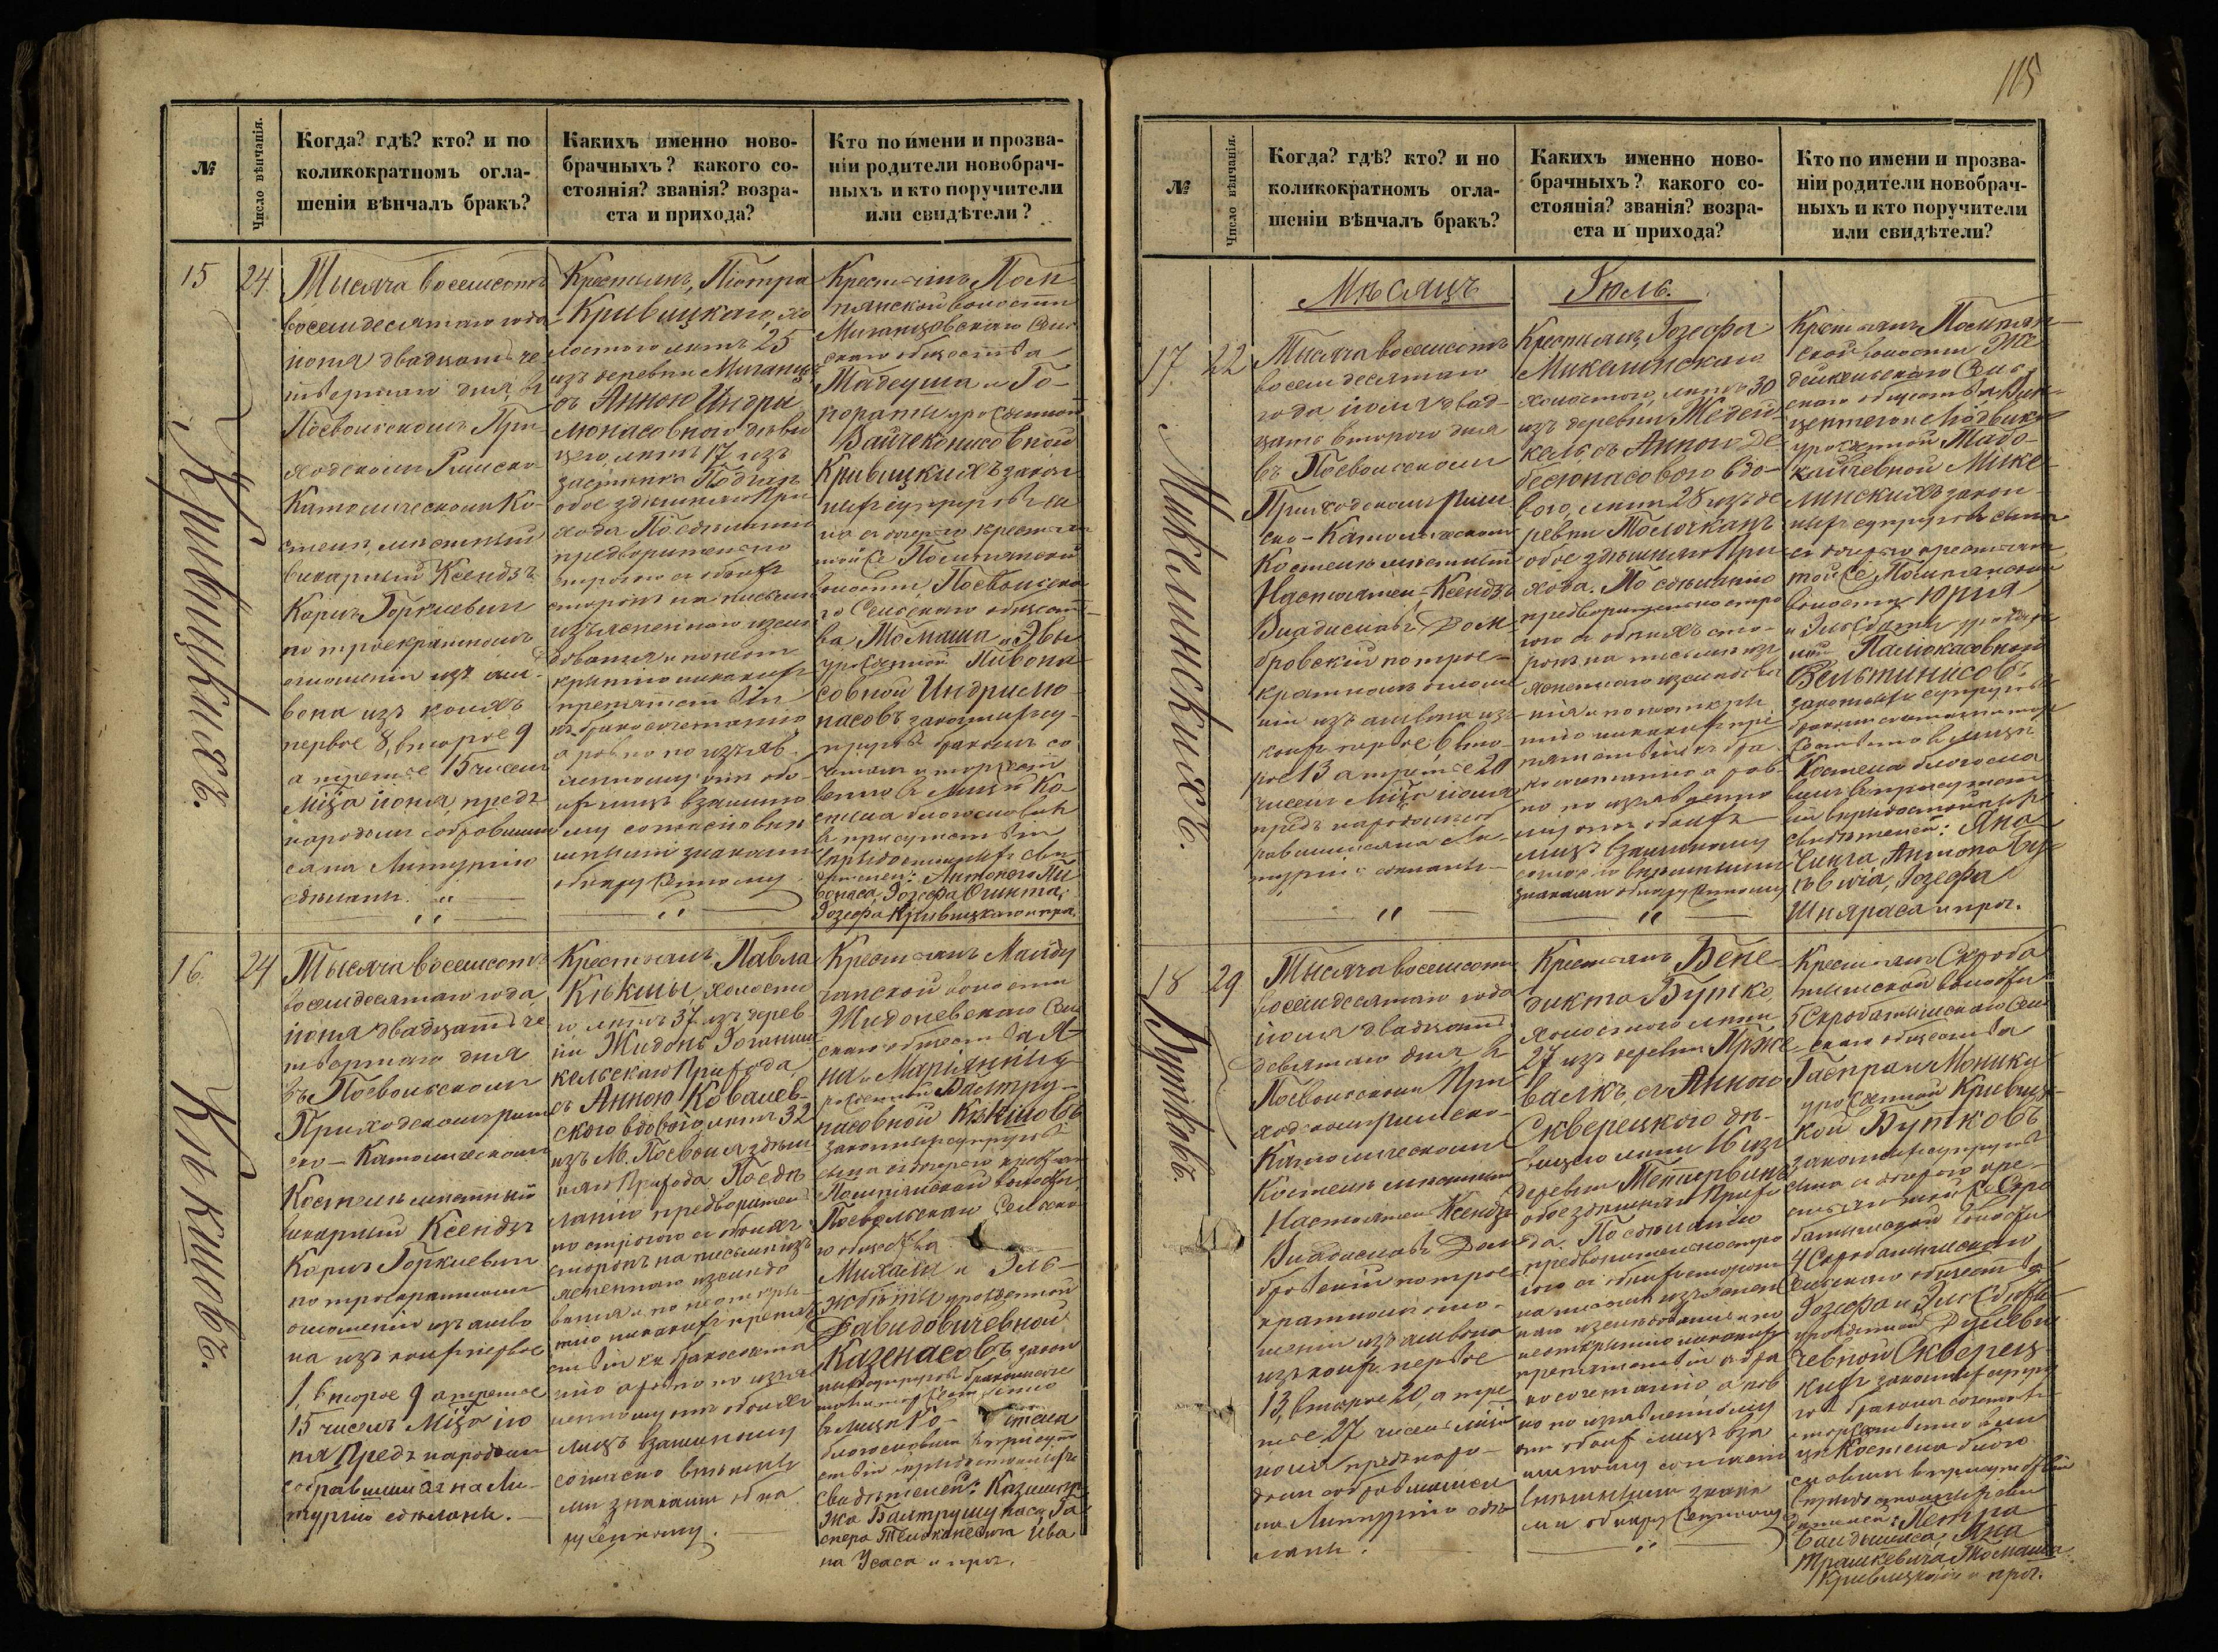 №
Число вѣнчанія.
Когда? гдѣ? кто? и по
коликократномъ огла-
шеніи вѣнчалъ бракъ?
Какихъ именно ново-
брачныхъ? какого со-
стоянія? званія? возра-
ста и прихода?
Кто по имени и прозва-
ніи родители новобрач-
ныхъ и кто поручители
или свидѣтели?
15
24.
Кривицкихъ.
Тысяча восемсотъ
восемдесятаго года
іюня двадцать че
твертаго дня, въ
Посвольскомъ При-
ходскомъ Римско-
Католическомъ Ко-
стелѣ, мѣстный
викарный Ксендзъ
Карлъ Горкиевич
по троекратномъ
оглашеніи изъ ам-
вона изъ коихъ
первое 8, второе 9
а третье 15 чиселъ
Мѣца іюня, предъ
народомъ собравшим
ся на Литургію
сдѣланы.
Крестьянъ, Піотра
Кривицкаго, хо
лостого лѣтъ 25
изъ деревни Миганцъ
съ Анною Индри
люнасовною дѣви
цею лѣтъ 17 изъ
застѣнка
обое здѣшняго При
хода. По сдѣланіи
предварительно
строгого съ обоихъ
сторонъ на письмѣ
изъясненнаго изслѣ
дованія и
никакихъ
препятствій
къ бракосочетанію
а равно по изъяв-
ленному отъ обо-
ихъ лицъ взаимно
му согласію внѣ
шними знаками
обнаруженному
Крестьянъ Поm-
пянской волости
Миганцовскаго Сель
скаго общества
Тадеуша и Го-
нораты урожденной
Вайчеконисовной
Кривицкихъ закон
ныхъ супруговъ сы
на съ дочерью крестьян
той же Помпянской
волости, Посвольска
го Сельскаго общест-
ва Томаша и Эвы
урожденной Пивона
совной Индрилю-
насовъ законныхъ су-
пруговъ бракомъ со
четалъ и торжест
венно въ лицѣ Ко-
стела благословилъ
въ присутствіи
вѣридостойныхъ сви-
дѣтелей: Антонаго Пи
вонаса, Іозефа Огинта,
Іозефа Кривицкаго и проч.
16.
24
Кѣкшовъ.
Тысяча восемсотъ
восемдесятаго года
іюня двадцать че
твертаго дня
въ Посвольскомъ
Приходскомъ рим
ско-Католическомъ
Костелѣ мѣстный
викарный Ксендзъ
Карлъ Горкиевич
по троекратномъ
оглашеніи изъ амво
на изъ коихъ первое
1, второе 9 а третье
15 чиселъ Мѣца ію
ня Предъ народомъ
собравшимся на Ли-
тургію сдѣланы.
Крестьянъ, Павла
Кѣкшы, холосто
го лѣтъ 37 изъ дерев-
ни Жидонь Іоганиш
кельскаго Прихода
съ Анною Ковалев-
скою вдовою лѣтъ 32
изъ М. Посволя здѣш
няго Прихода По сдѣ
ланію предварител
но строгого съ обоихъ
сторонъ на письмѣ изъ
ясненнаго изслѣдо
ванія и по неоткры-
тію никакихъ препят
ствій къ бракосочета
нію а равно по изъяв
ленному отъ обоихъ
лицъ взаимному
согласію внѣшни
ми знаками обна
руженному.
Крестьянъ Маиду
ганской волости
Жидоневскаго Сель
скаго общества Я-
на и Маріанны у-
рожденной Балтру-
насовной Кѣкшовъ
законныхъ супруговъ
сына съ дочерью крестьян
Помпянской волости
Посвольскаго Сельска-
го общества
Михала и Эль-
жбѣты урожденной
Давидовичевной
Казенасовъ закон
ныхъ супруговъ бракомъ соче
талъ и торжественно
въ лицѣ Ко- стела
благословилъ въ присут
ствіи вѣридостойныхъ
свидѣтелей: Казимир
жа Балтрушунаса, Га
спера Ива
на Усаса и проч.
115
№
Число вѣнчанія.
Когда? гдѣ? кто? и по
коликократномъ огла-
шеніи вѣнчалъ бракъ?
Какихъ именно ново-
брачныхъ? какого со-
стоянія? званія? возра-
ста и прихода?
Кто по имени и прозва-
ніи родители новобрач-
ныхъ и кто поручители
или свидѣтели?
Мѣсяцъ Іюль.
17.
22
Микелинскихъ.
Тысяча восемсотъ
восемдесятаго
года іюля двад-
цать второго дня
въ Посвольскомъ
Приходскомъ Рим
ско-Католическомъ
Костелѣ мѣстный
Настоятель-Ксендзъ
Владиславъ Дом-
бровскій по трое-
кратномъ оглаше
ніи изъ амвона изъ
коихъ первое 6 вто-
рое 13 а третье 20
чиселъ Мѣца іюля
предъ народомъ со
бравшимся на Ли-
тургію сдѣланы
Крестьянъ Іозефа
Микелинскаго
холостого, лѣтъ 30
изъ деревни Жедей
кель съ Анною Де
бесюнасовою вдо-
вою, лѣтъ 28 изъ де
ревни Толочканъ
обое здѣшняго При
хода. По сдѣланію
предварительно стро
гого съ обоихъ сто-
ронъ на письмѣ изъ
ясненнаго изслѣдова
нія и по неоткры
тію никакихъ пре
пятствій къ бра-
косочетанію а рав-
но по изъявленно
му отъ обоихъ
лицъ взаимному
согласію внѣшними
знаками обнаруженному
Крестьянъ Помпян
ской волости Же
дейкельскаго Сель-
скаго общества Вин-
центего и Людвики
урожденной Мадо-
кайчевной Мике-
линскихъ закон-
ныхъ супруговъ сына
съ дочерью крестьян
той же Помпянской
волости Юрія
и Эльжбѣты урожден
ной Палюкасовной
Вельтинисовъ
законныхъ супруговъ
бракомъ сочеталъ и торже
ственно въ лицѣ
Костела благосло
вилъ въ присутст
вій вѣридостойныхъ
свидѣтелей: Яна
Чинга, Антона
Іозефа
Шняраса и проч.
18
29
Вутковъ.
Тысяча восемсотъ
восемдесятаго года
іюля двадцать
девятаго дня въ
Посвольскомъ При
ходскомъ римско-
Католическомъ
Костелѣ мѣстный
Настоятель Ксендзъ
Владиславъ Дом
бровскій по трое-
кратномъ огла-
шеніи изъ амвона
изъ коихъ первое
13, второе 20, а тре
тье 27 чиселъ мѣца
іюля предъ наро-
домъ собравшимся
на Литургію сдѣ
ланы.
Крестьянъ Бене-
дикта Вутко,
холостого лѣтъ
27 изъ деревни Пяже-
валкъ, съ Анною
Скверецкою дѣ-
вицею лѣтъ 16 изъ
деревни Тетервинъ
обое здѣшняго Прихо
да. По сдѣланію
предварительно стро
гого съ обоихъ сторонъ
на письмѣ изъяснен
наго изслѣдованія и по
неоткрытію никакихъ
препятствій къ бра
косочетанію, а рав
но по изъявленному
отъ обоихъ лицъ вза
имному согласію
внѣшними знака
ми обнаруженному
Крестьянъ Скроба
тишской волости
Скробатишскаго Сель
скаго общества
Гаспра и Моники
урожденной Кривиц-
кой Вутковъ
законныхъ супруговъ
сына съ дочерью кре-
стьян той же Скро
батишской волости
Скробатишскаго
Сельскаго общества
Іозефа и Эльжбѣты
урожденной Дулеви
чевной Скверец-
кихъ законныхъ супру
говъ бракомъ сочеталъ
и торжественно въ ли
цѣ Костела благо
словилъ въ присутствіи
вѣридостойныхъ сви
дѣтелей: Петра
Бандышаса, Яна
Трашкевича, Томаша
Кривицкаго и проч.